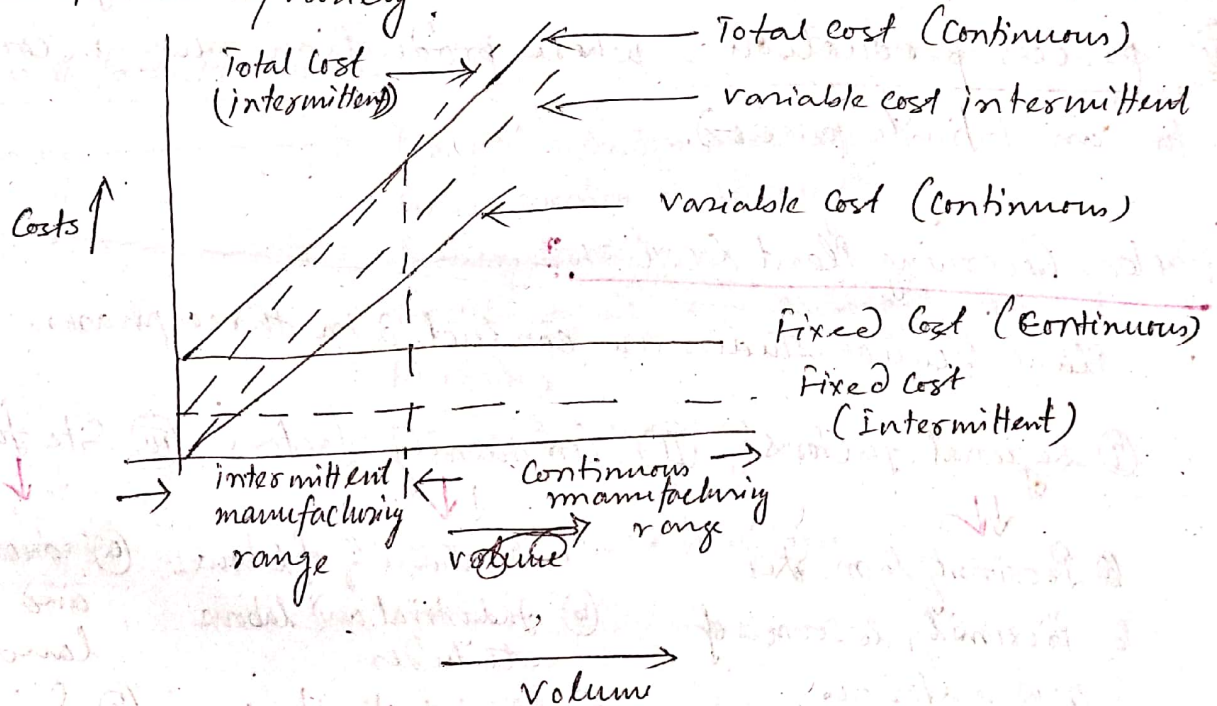 Total Cost (Continuous)
Total Cost
(intermittent)
variable cost intermittent
variable Cost (Continuous)
Costs
Fixed Cost (Continuous)
Fixed Cost
(Intermittent)
intermittent
manufacturing
range
Continuous
manufacturing
range
volume
Volume